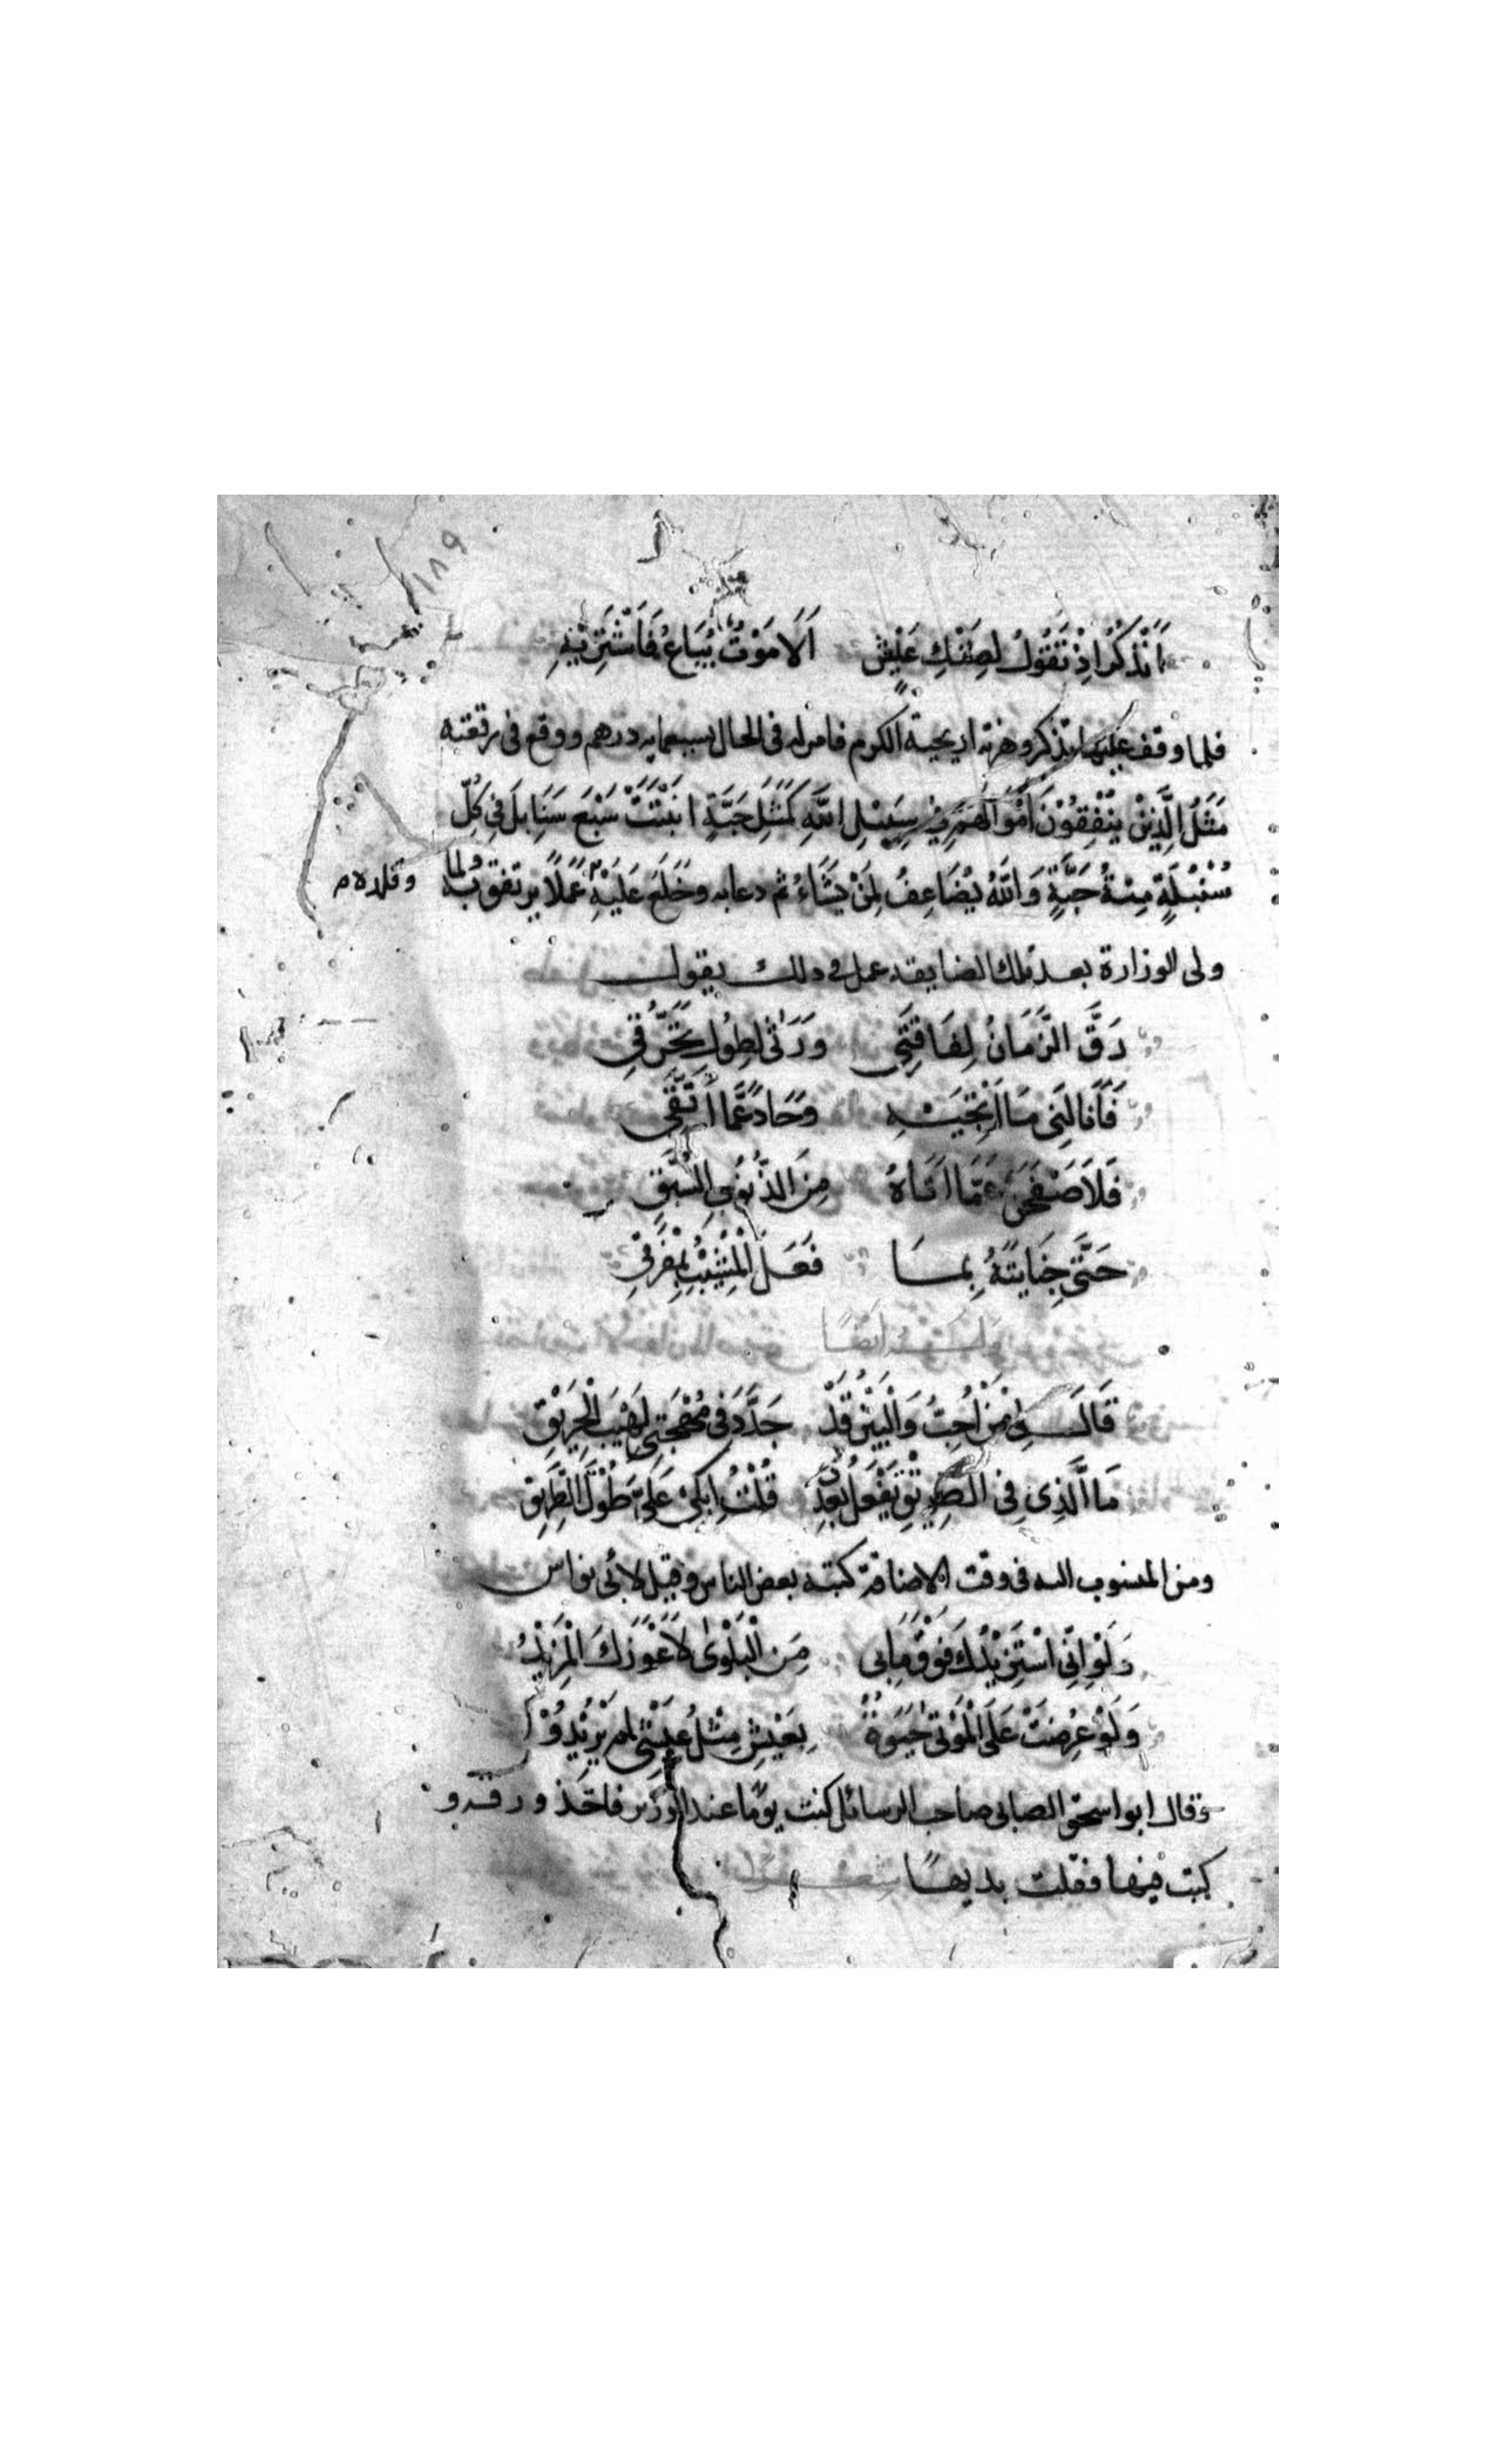 ١٨٩
اَتَذْكُرُ اِذْ تَقُوْلُ لِضَنْكِ عَيْشٍ اَلَا مَوْتٌ يُبَاعُ فَاَشْتَرِيْهِ
فلما وقف عليها تذكر وهزته اريحية الكرم فامر له فى الحال بسبعمايه درهم ووقع فى رقعته
مَثَلُ الَّذِيْنَ يُنْفِقُوْنَ اَمْوَالَهُمْ فِيْ سَبِيْلِ اللهِ كَمَثَلِ حَبَّةٍ انْبَتَتْ سَبْعَ سَنَابِلَ فِىْ كُلِّ
سُنْبُلَةٍ مِئةُ حَبَّةٍ وَاللهُ يُضَاعِفُ لِمَنْ يَشَاءُ ثم دعا به وخَلَعَ عَلَيْهِ عَمَلًا يرتفق به ولما
وقلده م
ولى الوزارة بعد تلك المضايقه عمل فى ذلك يقول
رَقَّ الزَّمَانُ لِفَاقَتِيْ وَرَثٰى لِطُوْلِ تَحَرُّقِىْ
فَاَنَالَنِى مَا اَرْتَجِيْهِ وَحَادَ عَمَّا اَتَّقِىْ
فَلَاَصْفَحَنْ عَمَّا اَتَاهُ مِنَ الذُّنُوْبِ السُّبَّقِ
حَتّٰى جِنَايَتَهُ بِمَا فَعَلَ الْمَشِيْبُ بِمَفْرَقِىْ
وله ايضًا
قَالَ لِىْ مَنْ اُحِبُّ وَالْبَيْنُ قَدْ جَدَّدَ فِى مُهْجَتِى لَهِيْبَ الْحَرِيْقِ
مَا الَّذِى فِى الطَّرِيْقِ تَفْعَلُ بَعْدِىْ قُلْتُ اَبْكِىْ عَلَيْكَ طُوْلَ الطَّرِيْقِ
ومن المنسوب اليه فى وقت الاضاقة كتبه بعض الناس وقيل لابى نواس
وَلَوْ اِنِّى اسْتَزِيْدُكَ فَوْقَ مَابِى مِنَ الْبَلْوٰى لَاَعْوَزَكَ الْمَزِيْدُ
وَلَوْ عُرِضَتْ عَلَى الْمَوْتٰى حَيٰوةٌ بِعَيْشٍ مِثْلِ عَيْشِى لم يُرِيْدُوْا
وقال ابو اسحق الصابى صاحب الرسائل كنت يومًا عند الوزير فاخذ ورقه و
كتب فيها فقلت بديهًا